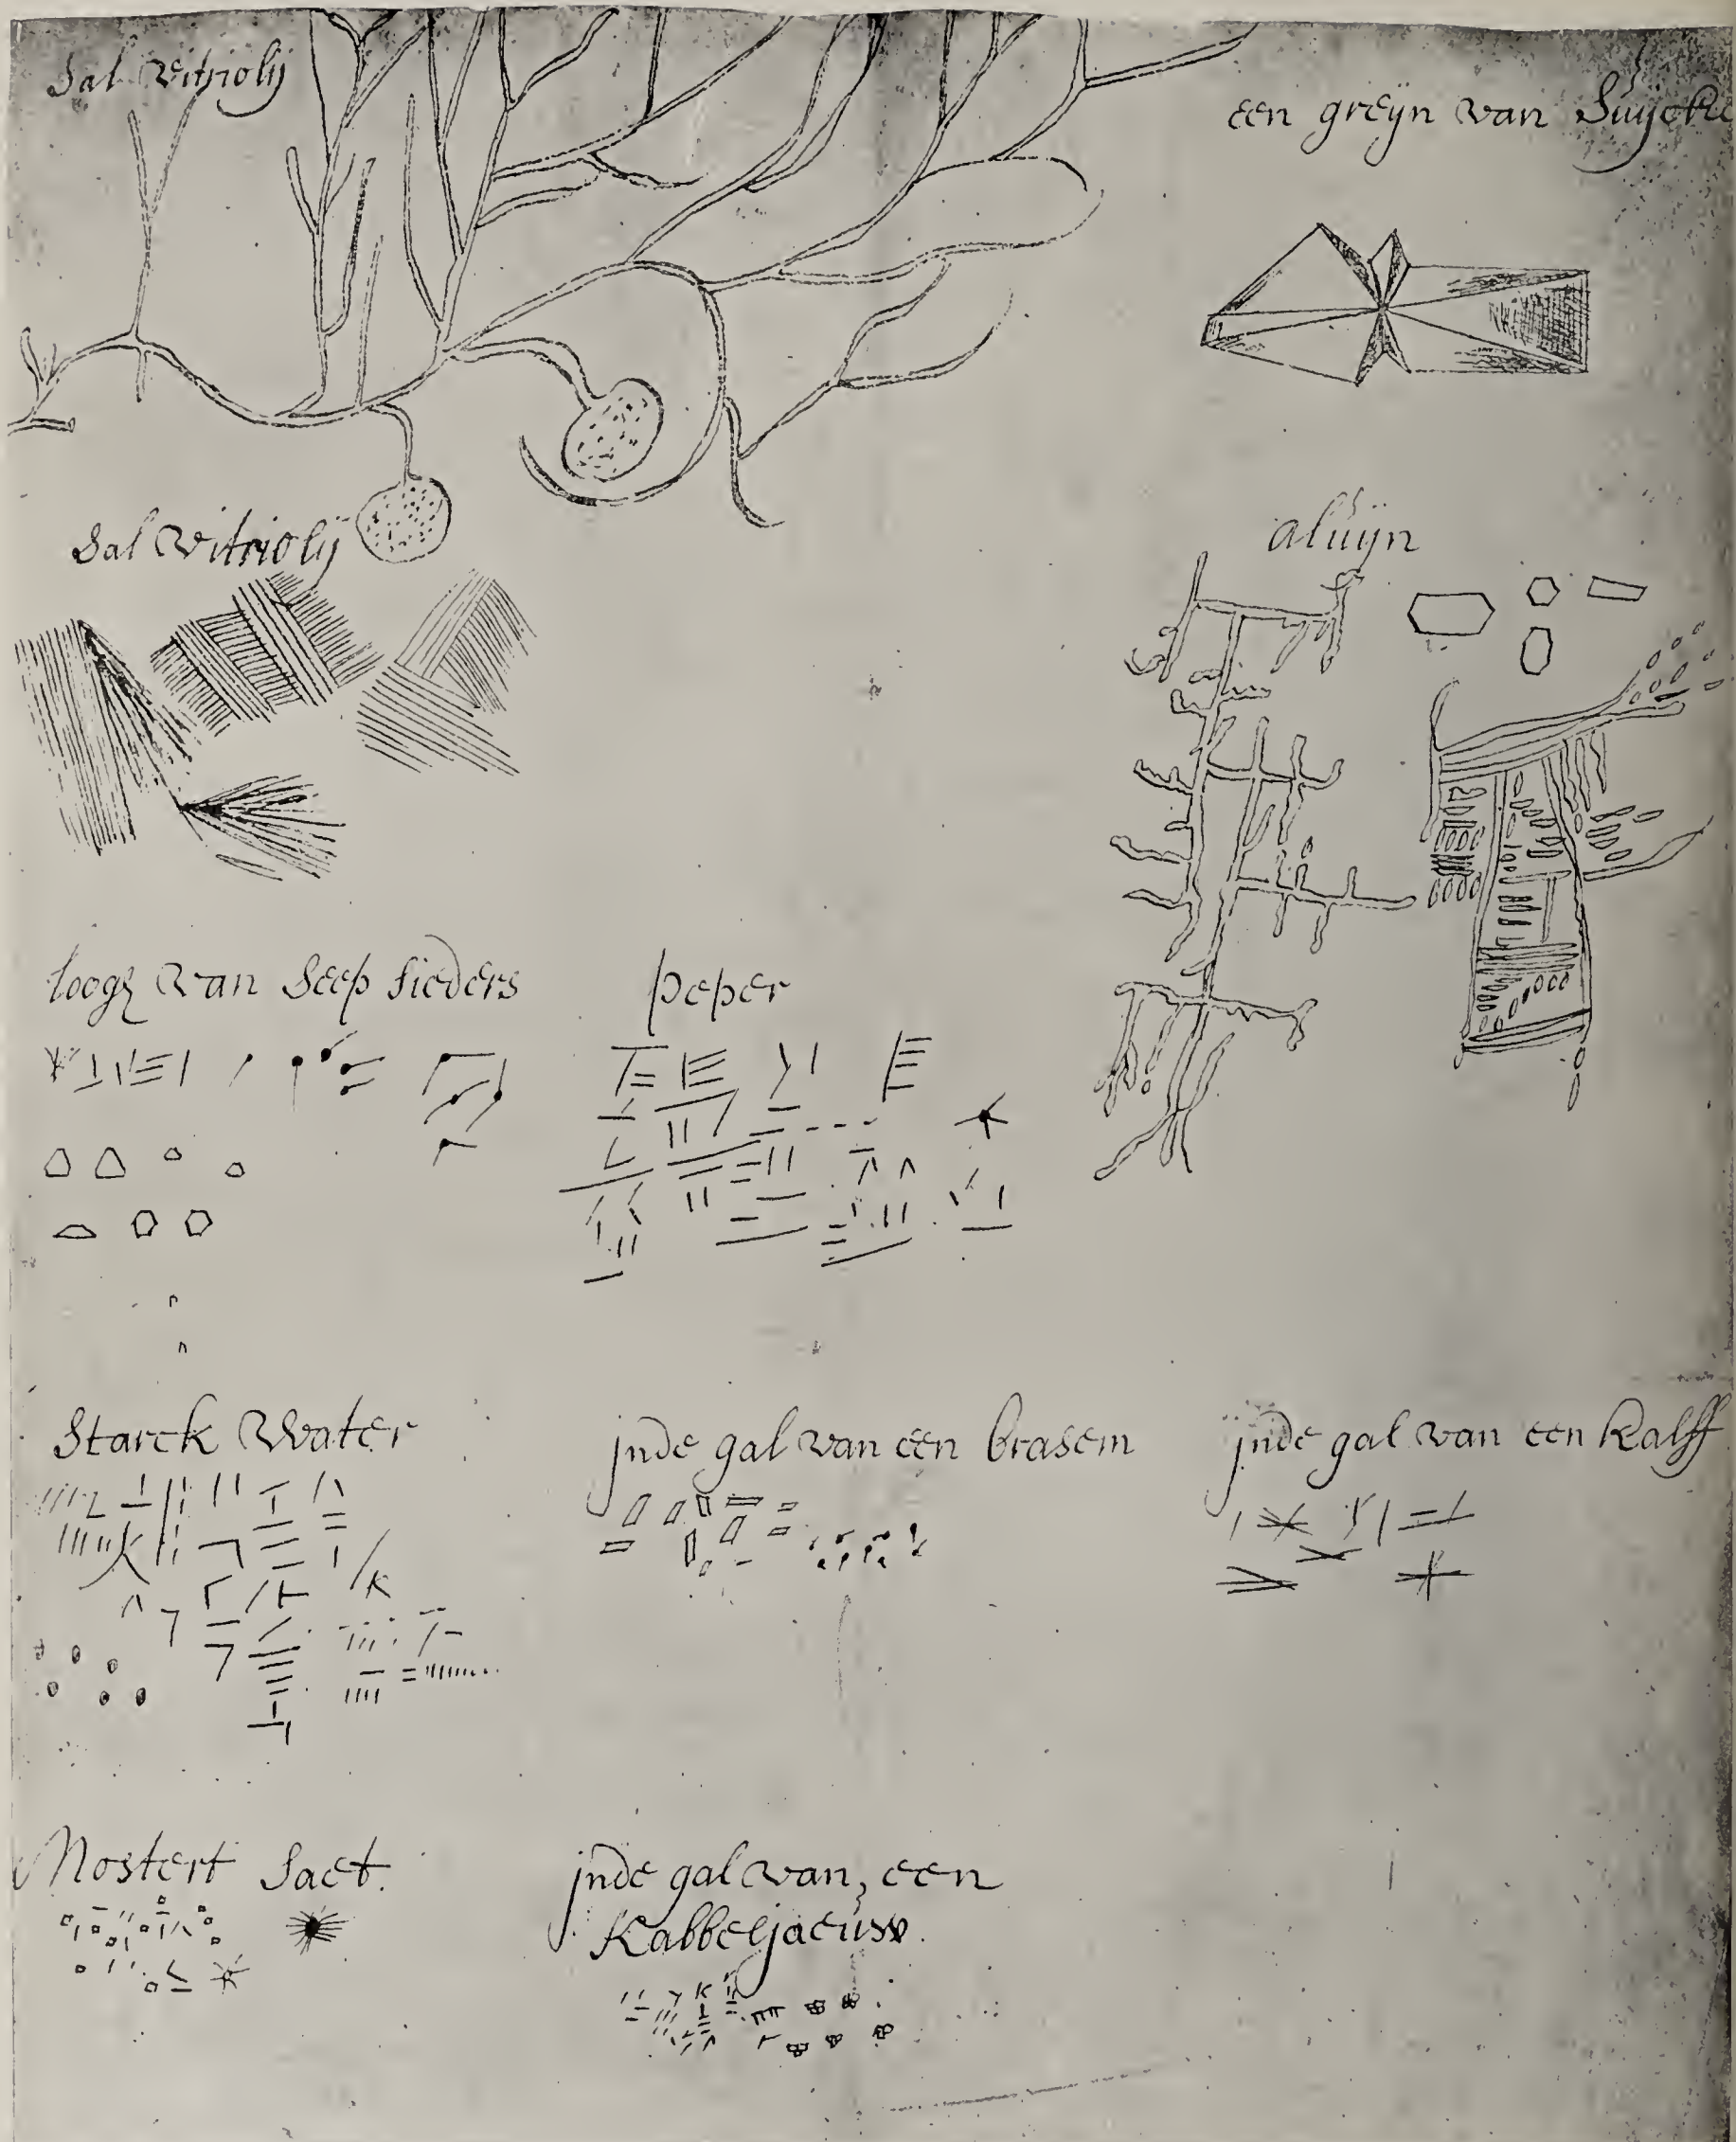 Sal Vitriolij
een greijn van
Sal Vitriolij
aluijn
loogh van Seep sieders
peper
Starck Water
jnde gal van een brasem
jnde gal van een Kalff
Mostert Saet.
jnde gal van, een
Kabbeljaeuw.